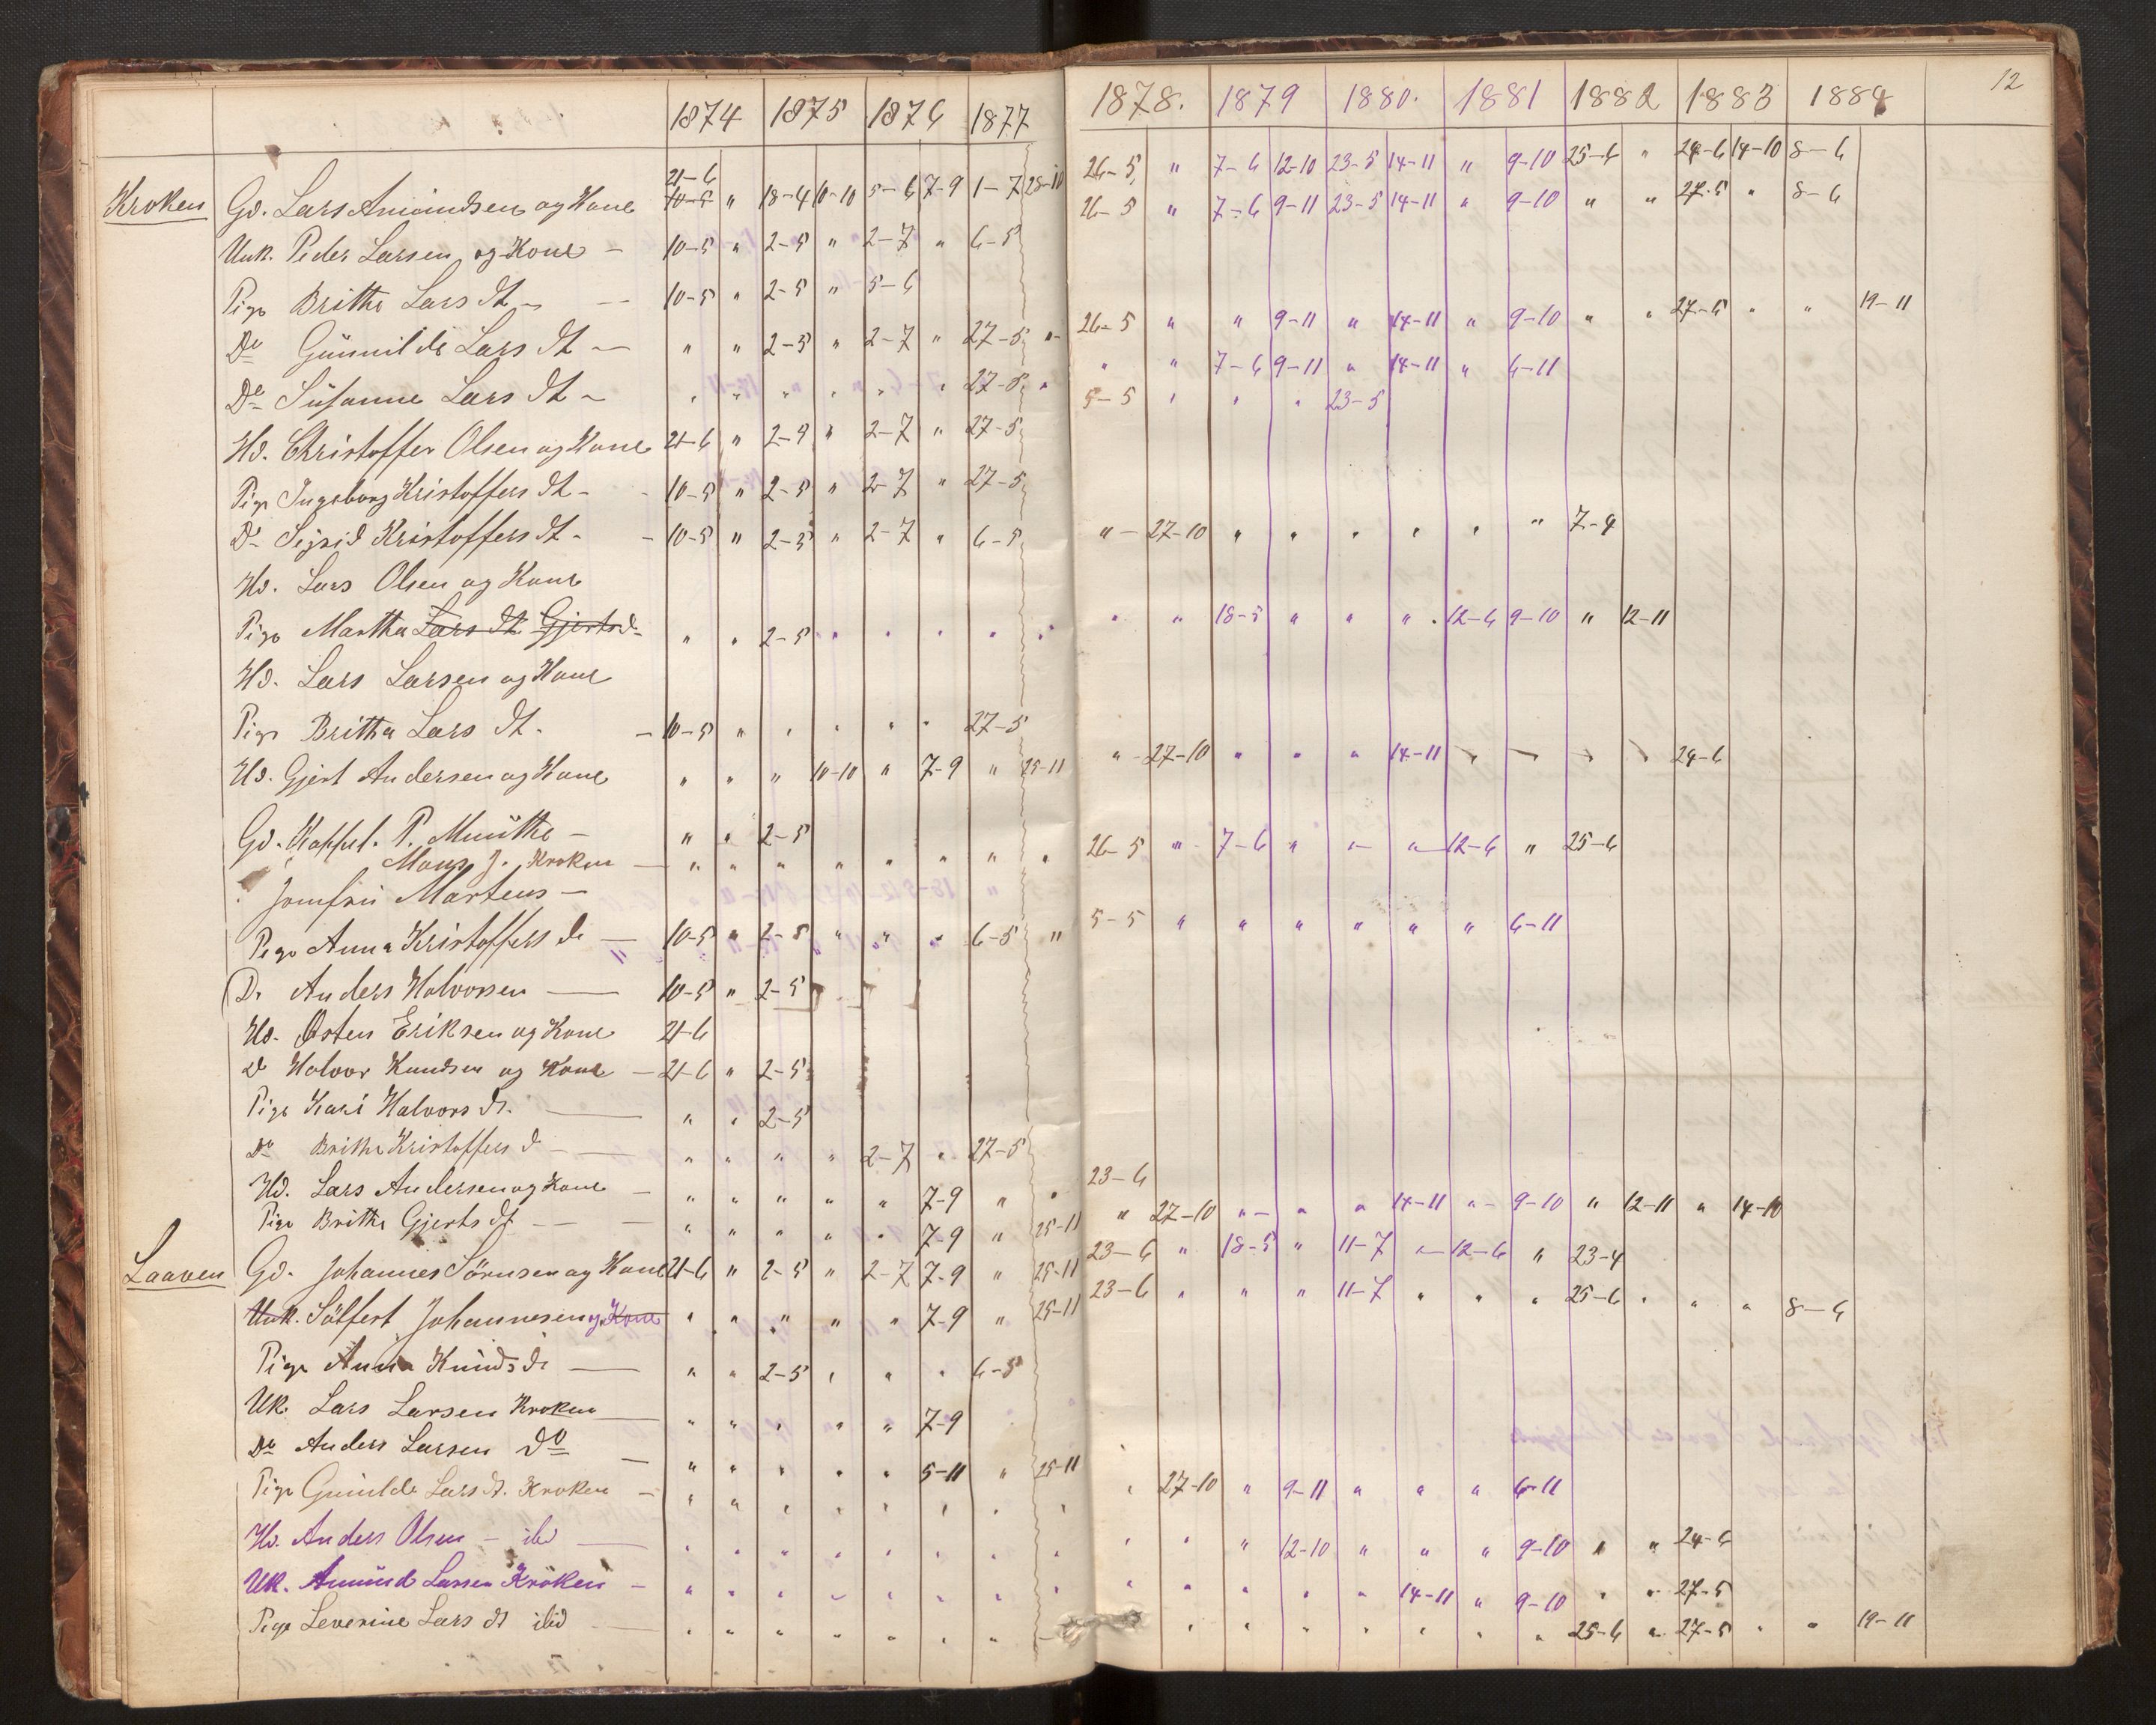 1874 1875 1876 1877 1878. 1879 1880. 1881 1882 1883 1884 12
21-6 26-5 " 7-6 12-10 23-5 14-11 " 9-10 25-6 " 24-6 14-10 8-6
Kroken Gd. Lars Amundsen og Kone 10-5 " 18-4 10-10 5-6 7-9 1-7 28-10 26-5 " 7-6 9-11 23-5 14-11 " 9-10 " " 27-5 " 8-6
Unk. Peder Larsen og Kone - 10-5 " 2-5 " 2-7 " 6-5
Pige Brithe Lars dt - 10-5 " 2-5 " 5-6
Do Gunnilde Lars dt - " " 2-5 " 2-7 " 27-5 " 26-5 " " 9-11 " 14-11 " 9-10 " " 27-5 " " 19-11
Do Susanne Lars dt - " " " " " " 27-5 " " " 7-6 9-11 " 14-11 " 6-11
5-5 " " " 23-5
Hd. Christoffer Olsen og Kone 21-6 " 2-9 " 2-7 " 27-5
Pige Ingeborg Kristoffers dt - 10-5 " 2-5 " 2-7 " 27-5
Do Sigrid Kristoffers dt - 10-5 " 2-5 " 2-7 " 6-5 " 27-10 " " " " " " 7-4
Hd. Lars Olsen og Kone
Pige Martha Lars dt Gjertsd - " " 2-5 " " " " " " " 18-5 " " " 12-6 9-10 " 12-11
Hd. Lars Larsen og Kone
Pige Britha Lars dt. - 10-5 " " " " " 27-5
Hd. Gjert Andersen og Kone " " " 10-10 " 7-9 " 25-11 " 27-10 " " " 14-11 " " " " 24-6
Gd. Kappel. P. Munthe - " " 2-5
" Mons J. Kroken - " " " " " " " " 26-5 " 7-6 " " " 12-6 " 25-6
Jomfru Martens -
Pige Anna Kristoffers d. - 10-5 " 2-5 " " " 6-5 " 5-5 " " " " " " 6-11
Dr Anders Halvorsen - 10-5 " 2-5
Hd. Østen Eriksen og Kone 21-6
D Halvor Knudsen og Kone - 21-6 " 2-5
Pige Kari Halvors dt. - " " 2-5
Do Brithe Kristoffers d - " " " " 2-7 " 27-5
Hd. Lars Andersen og Kone - " " " " " 7-9 " " 23-6
Pige Brithe Gjerts dt - " " " " " 7-9 " 25-11 " 27-10 " " " 14-11 " 9-10 " 12-11 " 14-10
Laaven Gd. Johannes Sörensen og Kone 21-6 " 2-5 " 2-7 7-9 " 25-11 23-6 " 18-5 " 11-7 " 12-6 " 23-4
Unk. Sölfert Johannesen og Kone " " " " " 7-9 " 25-11 23-6 " " " 11-7 " " " 25-6 " " " 8-6
Pige Anna Knuds dt - " " 2-5 " " " 6-5
Uk. Lars Larsen Kroken - " " " " " 7-9
Do Anders Larsen Do - " " " " " 5-11 " 25-11
Pige Gunilde Lars dt. Kroken - " " " " " " " " " 27-10 " 9-11 " " " 6-11
Hd. Anders Olsen - ibd - " " " " " " " " " " " 12-10 " " " 9-10 " " 24-6
Uk. Amund Larsen Kroken - " " " " " " " " " " " " " 14-11 " 9-10 " " 27-5
Pige Severine Lars dt ibid - " " " " " " " " " " " " " " " 25-6 " 27-5 " " 19-11